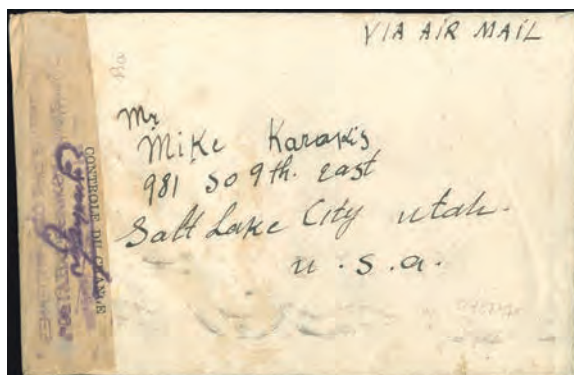 VIA AIR MAIL
Mr
Mike Karakis
981 So 9th. East
Salt Lake City Utah.
U.S.A.
CONTROLE DU CHANGE